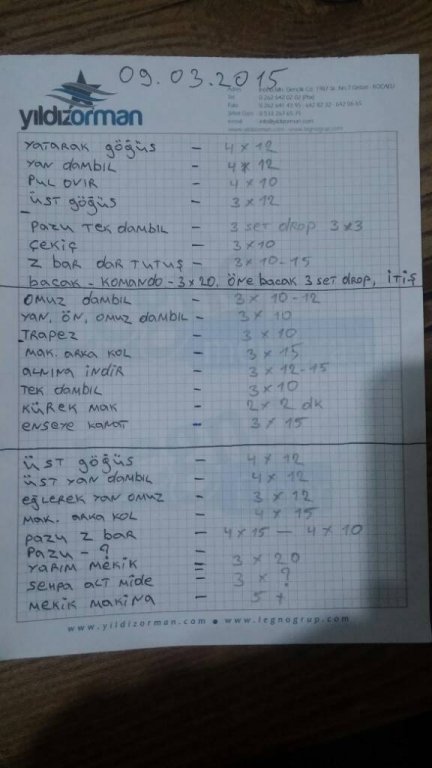 09.03.2015
yıldızorman
YATARAK göğüs - 4x12
YAN dAMbIL - 4x12
PUL OVIR - 4x10
üst göğüs - 3x12
PAZU TEK dAMbIL - 3 SET drop 3x3
ÇEKİÇ - 3x10
Z bAR dAR TUTUŞ - 3x10-15
bACAK - KOMANDO - 3x20, ÖNE bACAK 3 SET dROP, İTİŞ
OMUZ dAMbIL - 3x 10-12
YAN, ÖN, OMUZ dAMbIL - 3x10
TRAPEZ - 3x10
MAK. ARKA KOL - 3x15
ALNINA İNDİR - 3x12-15
TEK dAMbIL - 3x10
KÜREK MAK - 2x2 dk
ENSEYE KANAT - 3x15
ÜST göğüs - 4x12
ÜST YAN dAMbIL - 4x12
EĞLEREK YAN OMUZ - 3x12
MAK. ARKA KOL - 4x15
PAZU Z bAR - 4x15 - 4x10
PAZU - ? -
YARIM MEKİK = 3x20
SEHPA ALT MİDE - 3x?
MEKİK MAKİNA - 5 +
www.yildizorman.com • www.legnogrup.com